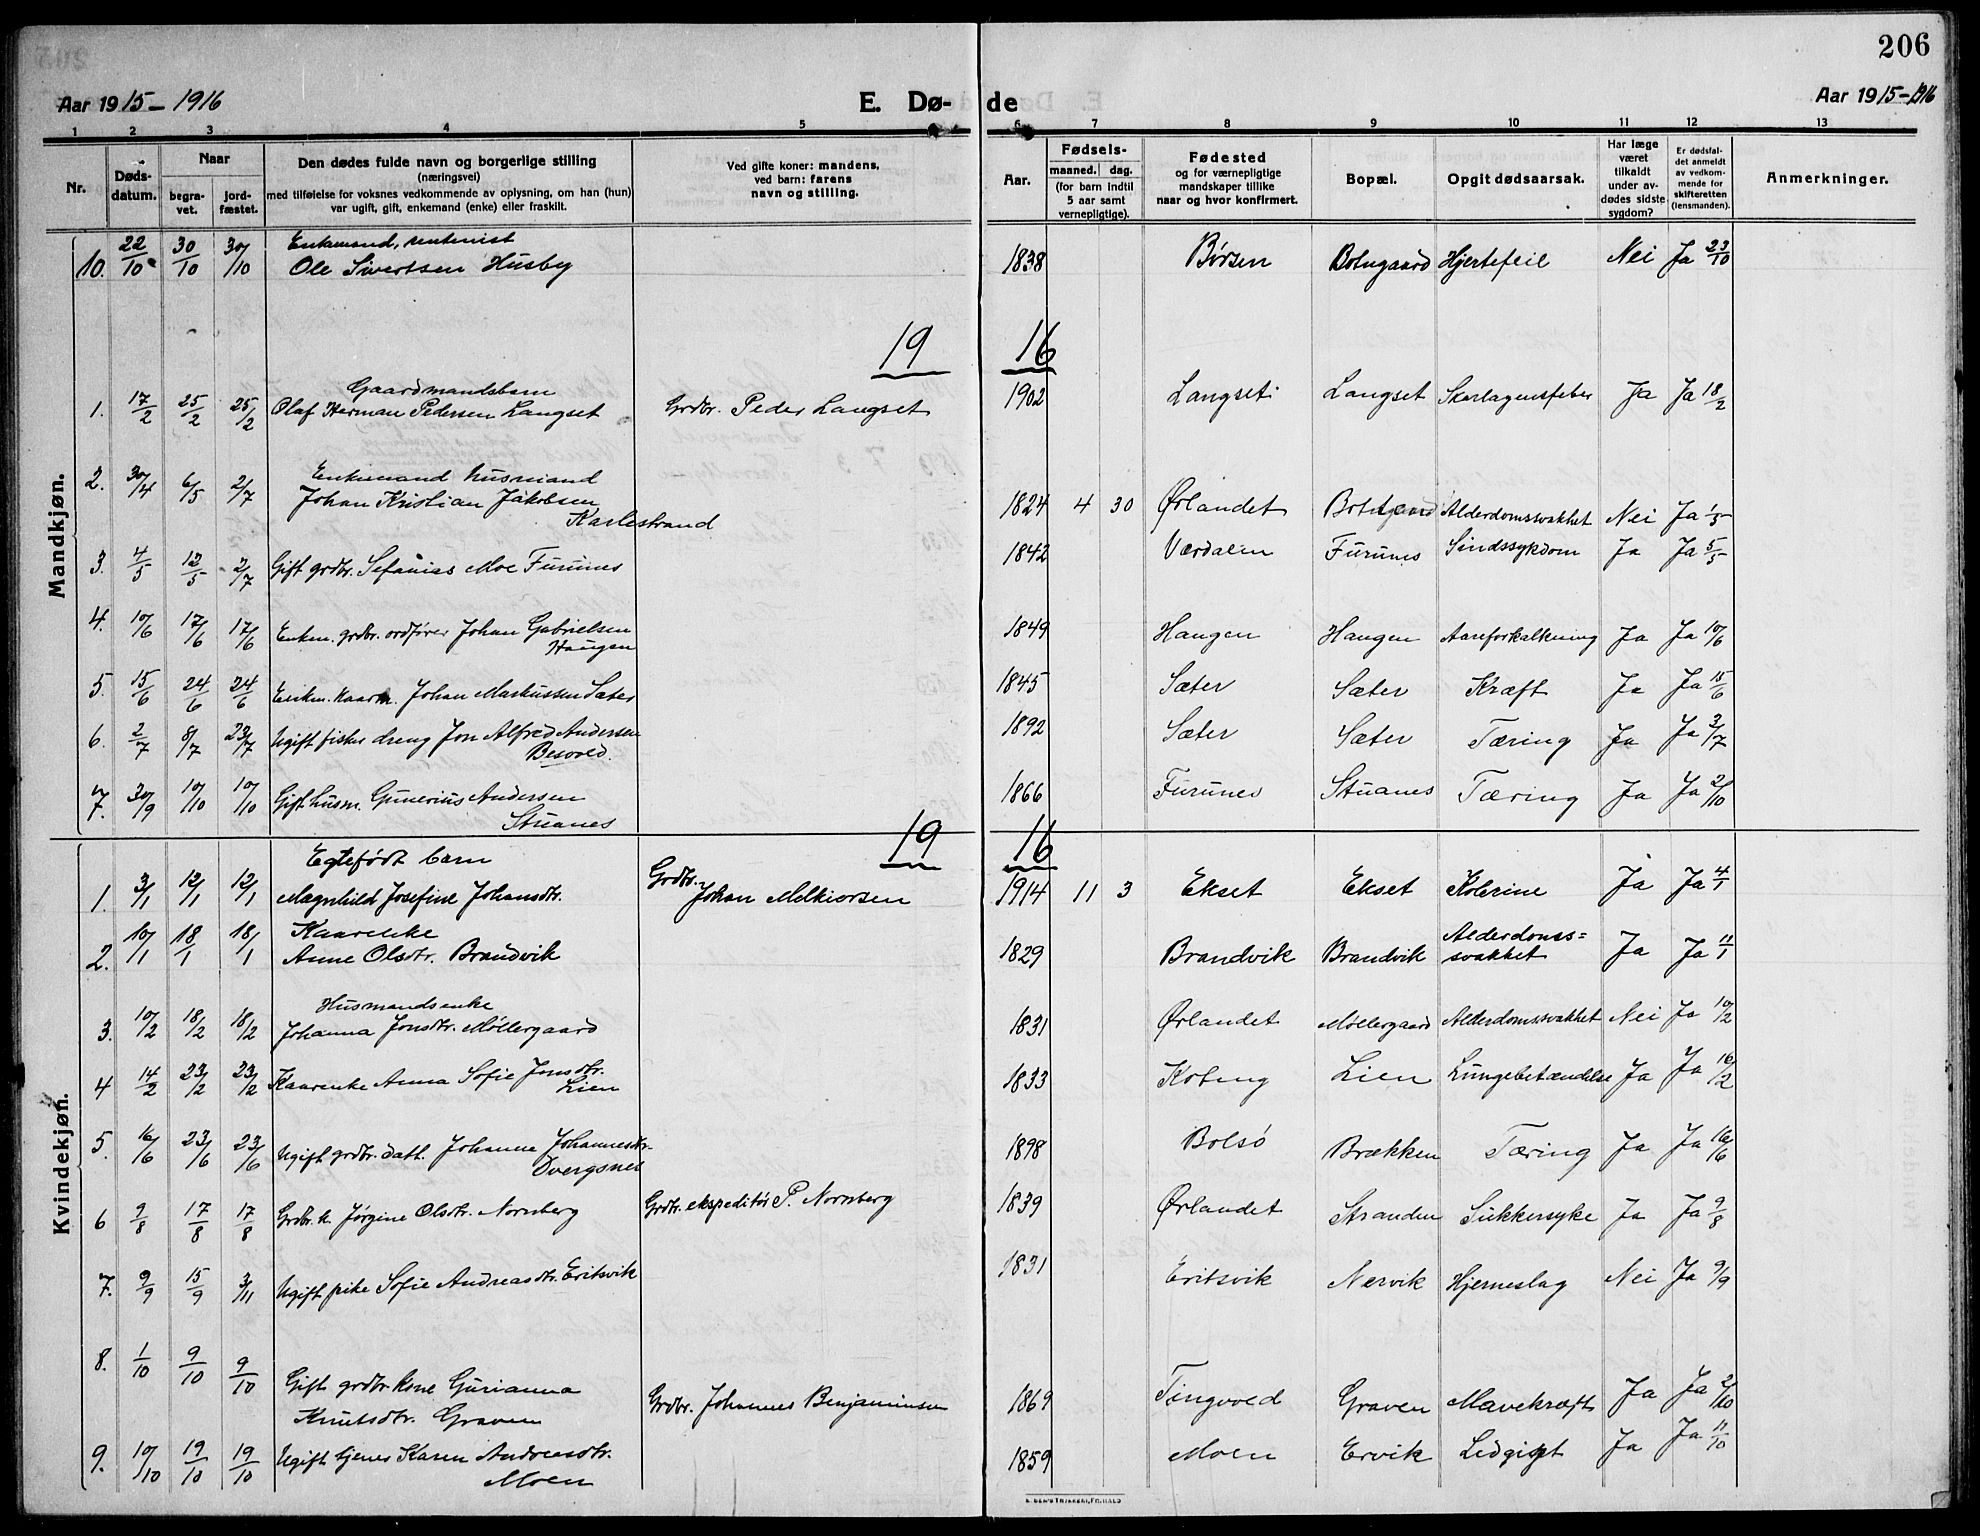 206
Aar 1915-1916 E. Dø- de Aar 1915-1916
1 2 3 4 5 6 7 8 9 10 11 12 13
Nr. Døds-datum. Naar begra-vet. jord-fæstet. Den dødes fulde navn og borgerlige stilling (næringsvei) med tilføielse for voksnes vedkommende av oplysning, om han (hun) var ugift, gift, enkemand (enke) eller fraskilt. Ved gifte koner: mandens, ved barn: farens navn og stilling. Aar. Fødsels- maaned. dag. (for barn indtil 5 aar samt vernepligtige). Fødested og for værnepligtige mandskaper tillike naar og hvor konfirmert. Bopæl. Opgit dødsaarsak. Har læge været tilkaldt under av-dødes sidste sygdom? Er dødsfal-det anmeldt av vedkom-mende for skifteretten (lensmanden). Anmerkninger.
Mandkjøn.
Enkemand, rentenist
10. 22/10 30/10 30/10 Ole Sivertsen Husby 1838 Børsen Botngaard Hjertefeil Nei Ja 23/10
19 16
Gaardmandsbarn
1. 17/2 25/2 25/2 Olaf Herman Pedersen Langset Grdbr. Peder Langset 1902 Langset Langset Skarlagensfeber Ja Ja 18/2
Enkemand husmand
2. 30/4 6/5 2/7 Johan Kristian Jakobsen 1824 4 30 Ørlandet Botngaard Alderdomssvakhet Nei Ja 1/5
Karlestrand
3. 4/5 12/5 2/7 Gift grdbr. Sefanias Moe Furunes 1842 Værdalen Furunes Sindssykdom Ja Ja 5/5
4. 10/6 17/6 17/6 Enkem. grdbr. ordfører Johan Gabrielsen 1849 Haugen Haugen Aareforkalkning Ja Ja 10/6
Haugen
5. 15/6 24/6 24/6 Enkem. kaarm. Johan Markussen Sæter 1845 Sæter Sæter Kræft Ja Ja 15/6
6. 2/7 8/7 23/7 Ugift fisker dreng Jon Alfred Andersen 1892 Sæter Sæter Tæring Ja Ja 3/7
Besvold.
7. 30/9 10/10 10/10 Gift husm. Gunerius Andersen 1866 Furunes Stuanes Tæring Ja Ja 2/10
Stuanes
19 16
Kvindekjøn.
Egtefødt barn
1. 3/1 12/1 12/1 Magnhild Josefine Johansdtr. Grdbr. Johan Melkiorsen 1914 11 3 Ekset Ekset Kolerine Ja Ja 4/1
Kaarenke
2. 10/1 18/1 18/1 Anne Olsdtr. Brandvik 1829 Brandvik Brandvik Alderdoms=svakhet Ja Ja 11/1
Husmandsenke
3. 10/2 18/2 18/2 Johanna Jonsdtr. Møllergaard 1831 Ørlandet Møllergaard Alderdomssvakhet Nei Ja 10/2
4 14/2 23/2 23/2 Kaarenke Anna Sofie Jonsdtr. 1833 Koteng Lien Lungebetændelse Ja Ja 16/2
Lien
5. 16/6 23/6 23/6 Ugift grdbr. datt. Johanna Johannesdtr. 1898 Bolsø Brækken Tæring Ja Ja 16/6
Dvergsnes
6 9/8 17/8 17/8 Grdbr. k. Jørgine Olsdtr. Nornberg Grdbr. ekspeditør P. Nornberg 1839 Ørlandet Stranden Sukkersyke Ja Ja 9/8
7. 9/9 15/9 3/11 Ugift pike Sofie Andreasdtr. Eritsvik 1831 Eritsvik Nervik Hjerneslag Nei Ja 9/9
8. 1/10 9/10 9/10 Gift grdbr. kone Gurianna
Knutsdtr. Graven Grdbr. Johannes Benjaminsen 1869 Tingvold Graven Mavekræft Ja Ja 2/10
9. 10/10 19/10 19/10 Ugift tjener Karen Andreasdtr. 1859 Moen Ervik Ledgigt Ja Ja 11/10
Moen